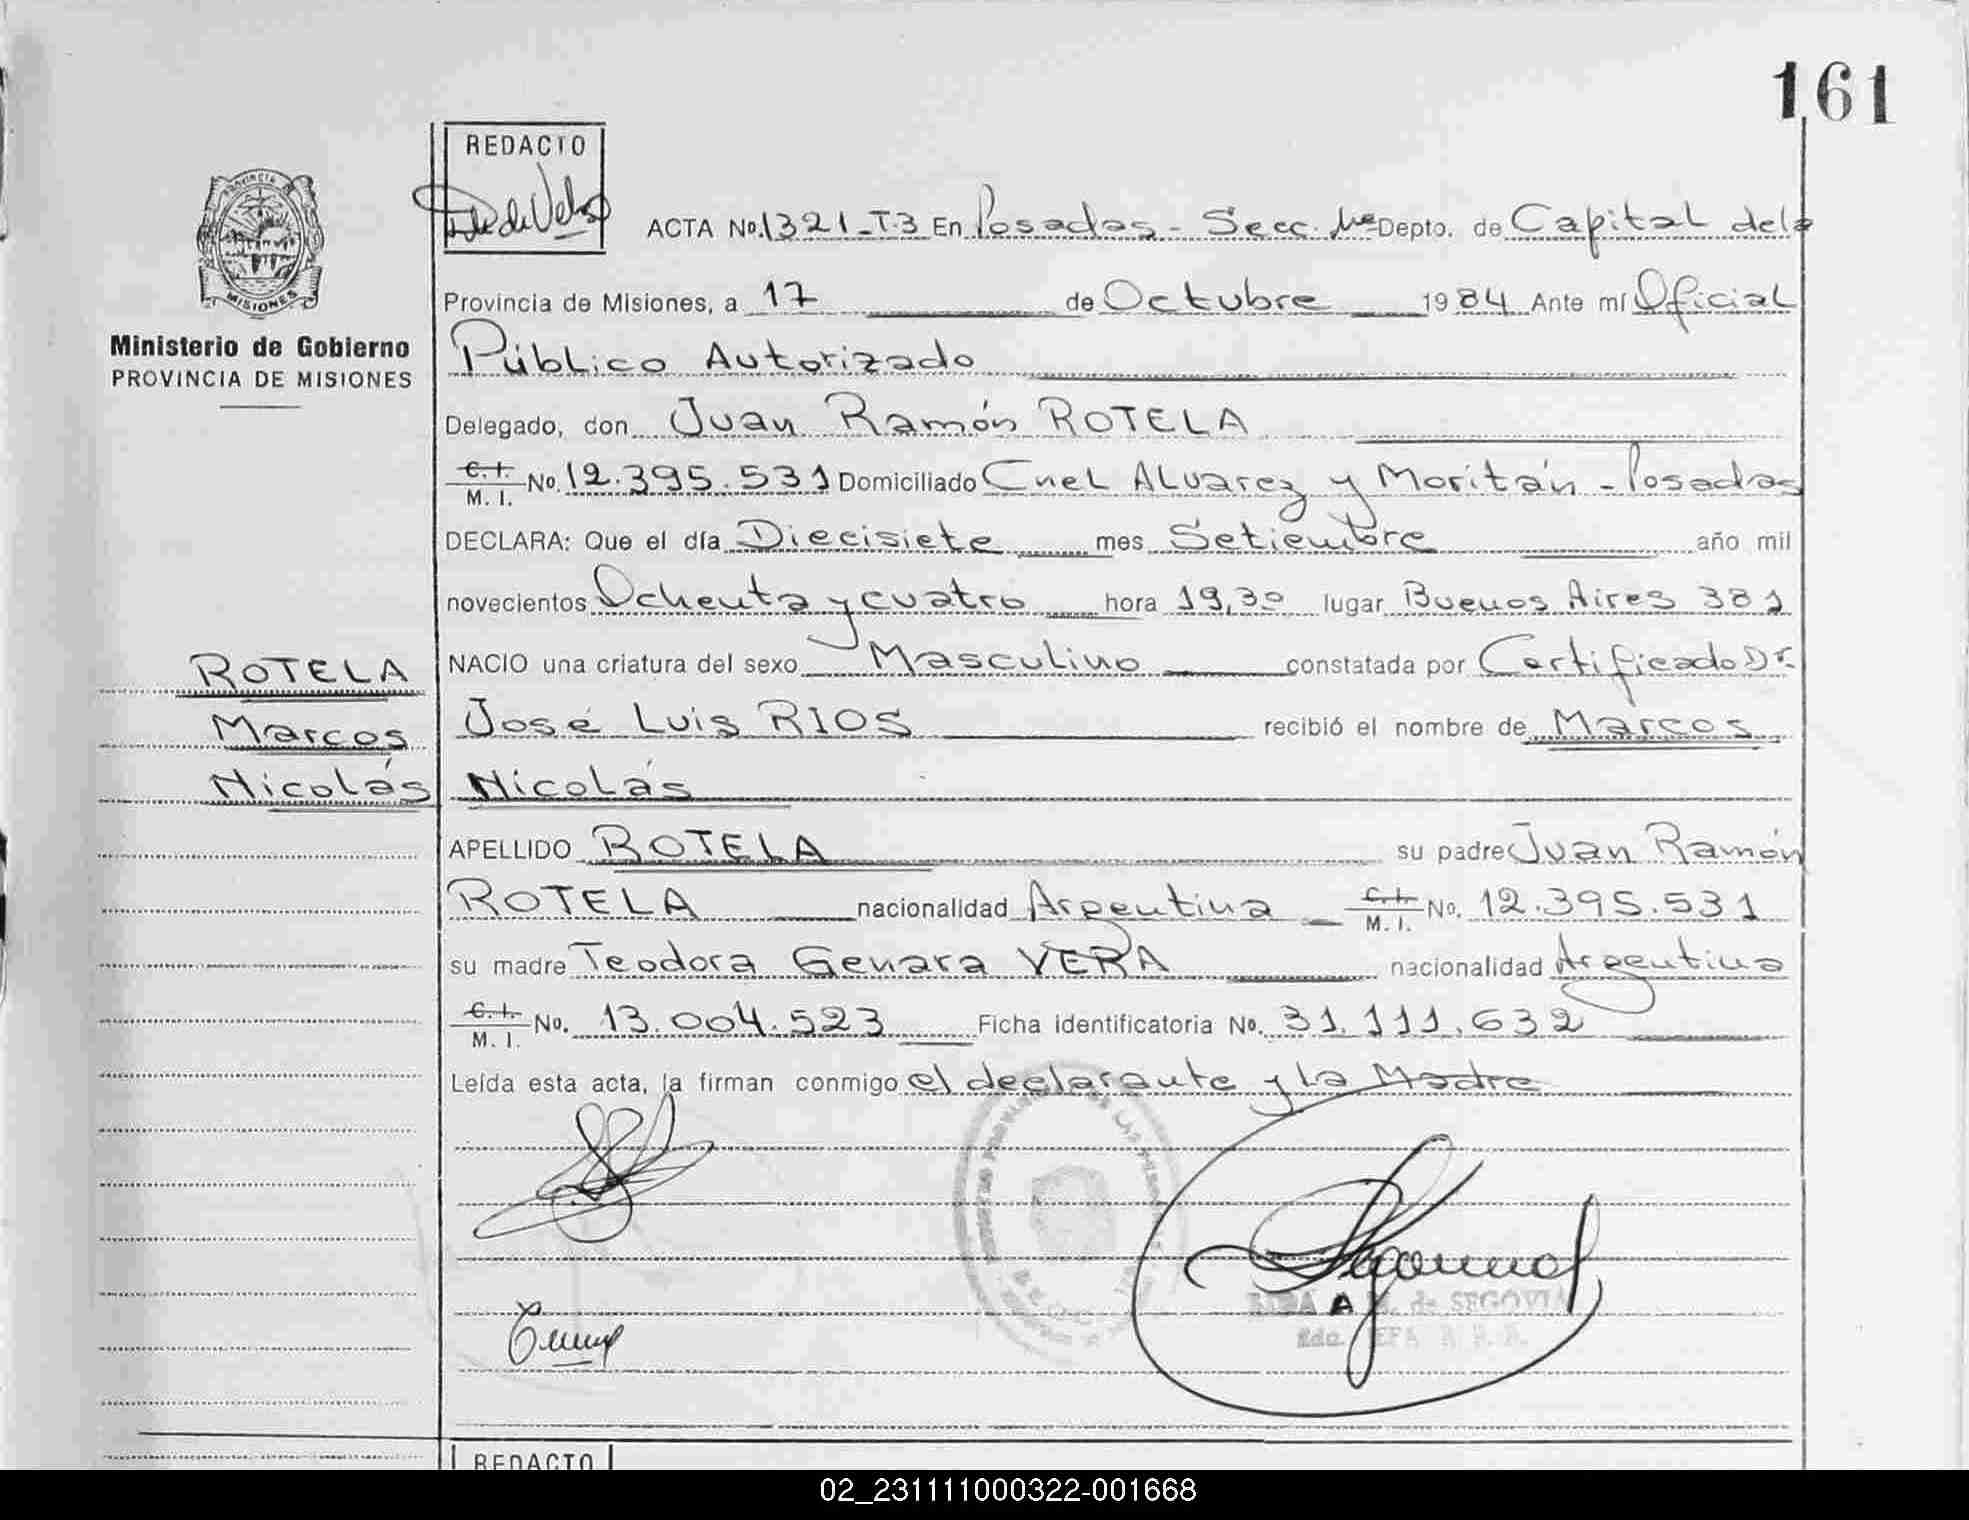 161
REDACTO
PROVINCIA
MISIONES
Ministerio de Gobierno
PROVINCIA DE MISIONES
ACTA No. 1321_T.3 En Posadas - Secc. 1ra Depto. de Capital de la
Provincia de Misiones, a 17 de Octubre 1984 Ante mí Oficial
Público Autorizado
Delegado, don Juan Ramón ROTELA
C.I. M. I. No. 12.395.531 Domiciliado Cnel Alvarez y Moritán - Posadas
DECLARA: Que el día Diecisiete mes Setiembre año mil
novecientos Ochenta y cuatro hora 19,30 lugar Buenos Aires 381
NACIO una criatura del sexo Masculino constatada por Certificado Dr.
José Luis RIOS recibió el nombre de Marcos
Nicolás
ROTELA
Marcos
Nicolás
APELLIDO ROTELA su padre Juan Ramón
ROTELA nacionalidad Argentina C.I. M. I. No. 12.395.531
su madre Teodora Genara VERA nacionalidad Argentina
C.I. M. I. No. 13.004.523 Ficha identificatoria No. 31.111.632
Leída esta acta, la firman conmigo el declarante y la Madre
A M. de SEGOVIA
REDACTO
02_231111000322-001668